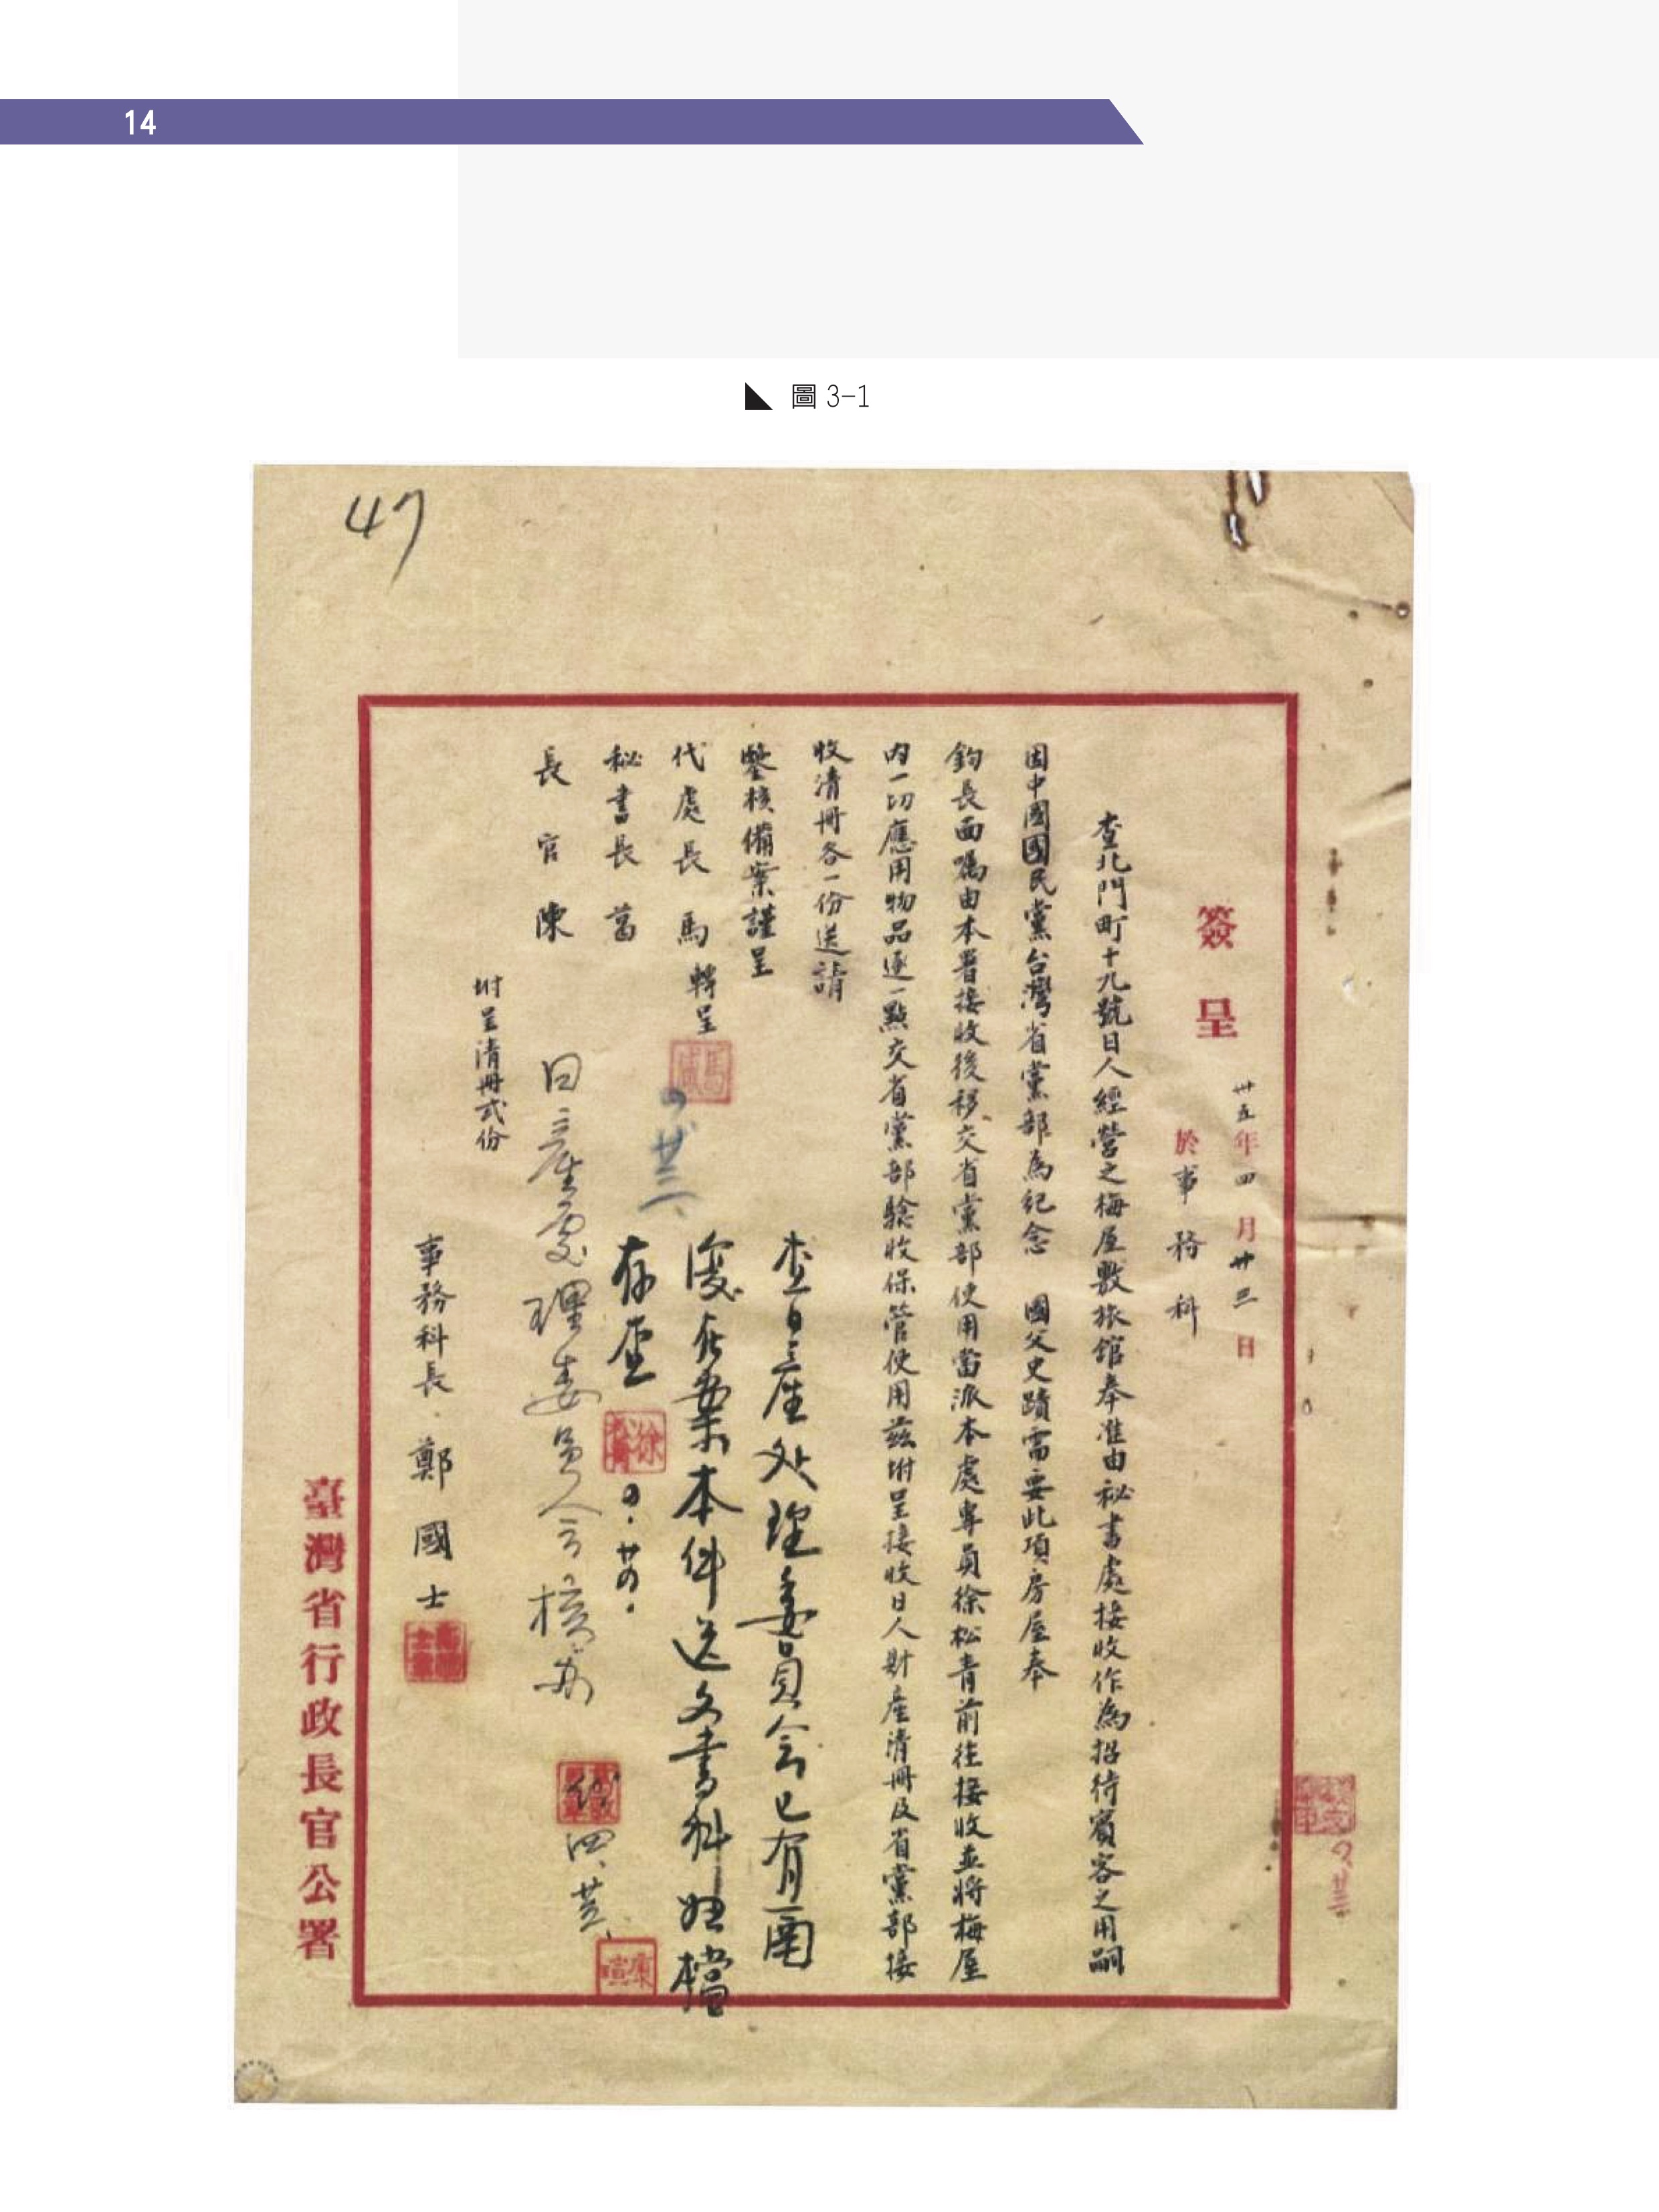 14
圖 3-1
47
簽呈
卅五年四月廿三日
於事務科
查北門町十九號日人經營之梅屋敷旅館奉准由祕書處接收作為招待賓客之用嗣
因中國國民黨台灣省黨部為紀念 國父史蹟需要此項房屋奉
鈞長面囑由本署接收後移交省黨部使用當派本處專員徐松青前往接收並將梅屋
內一切應用物品逐一點交省黨部驗收保管使用茲坿呈接收日人財產清冊及省黨部接
收清冊各一份送請
鑒核備案謹呈
代處長馬轉呈
秘書長葛
長官陳
坿呈清冊弍份
事務科長 鄭國士
查日產处理委員会已有
案本件送文書科 檔
存查
日產處理委員会核辦
四、
臺灣省行政長官公署